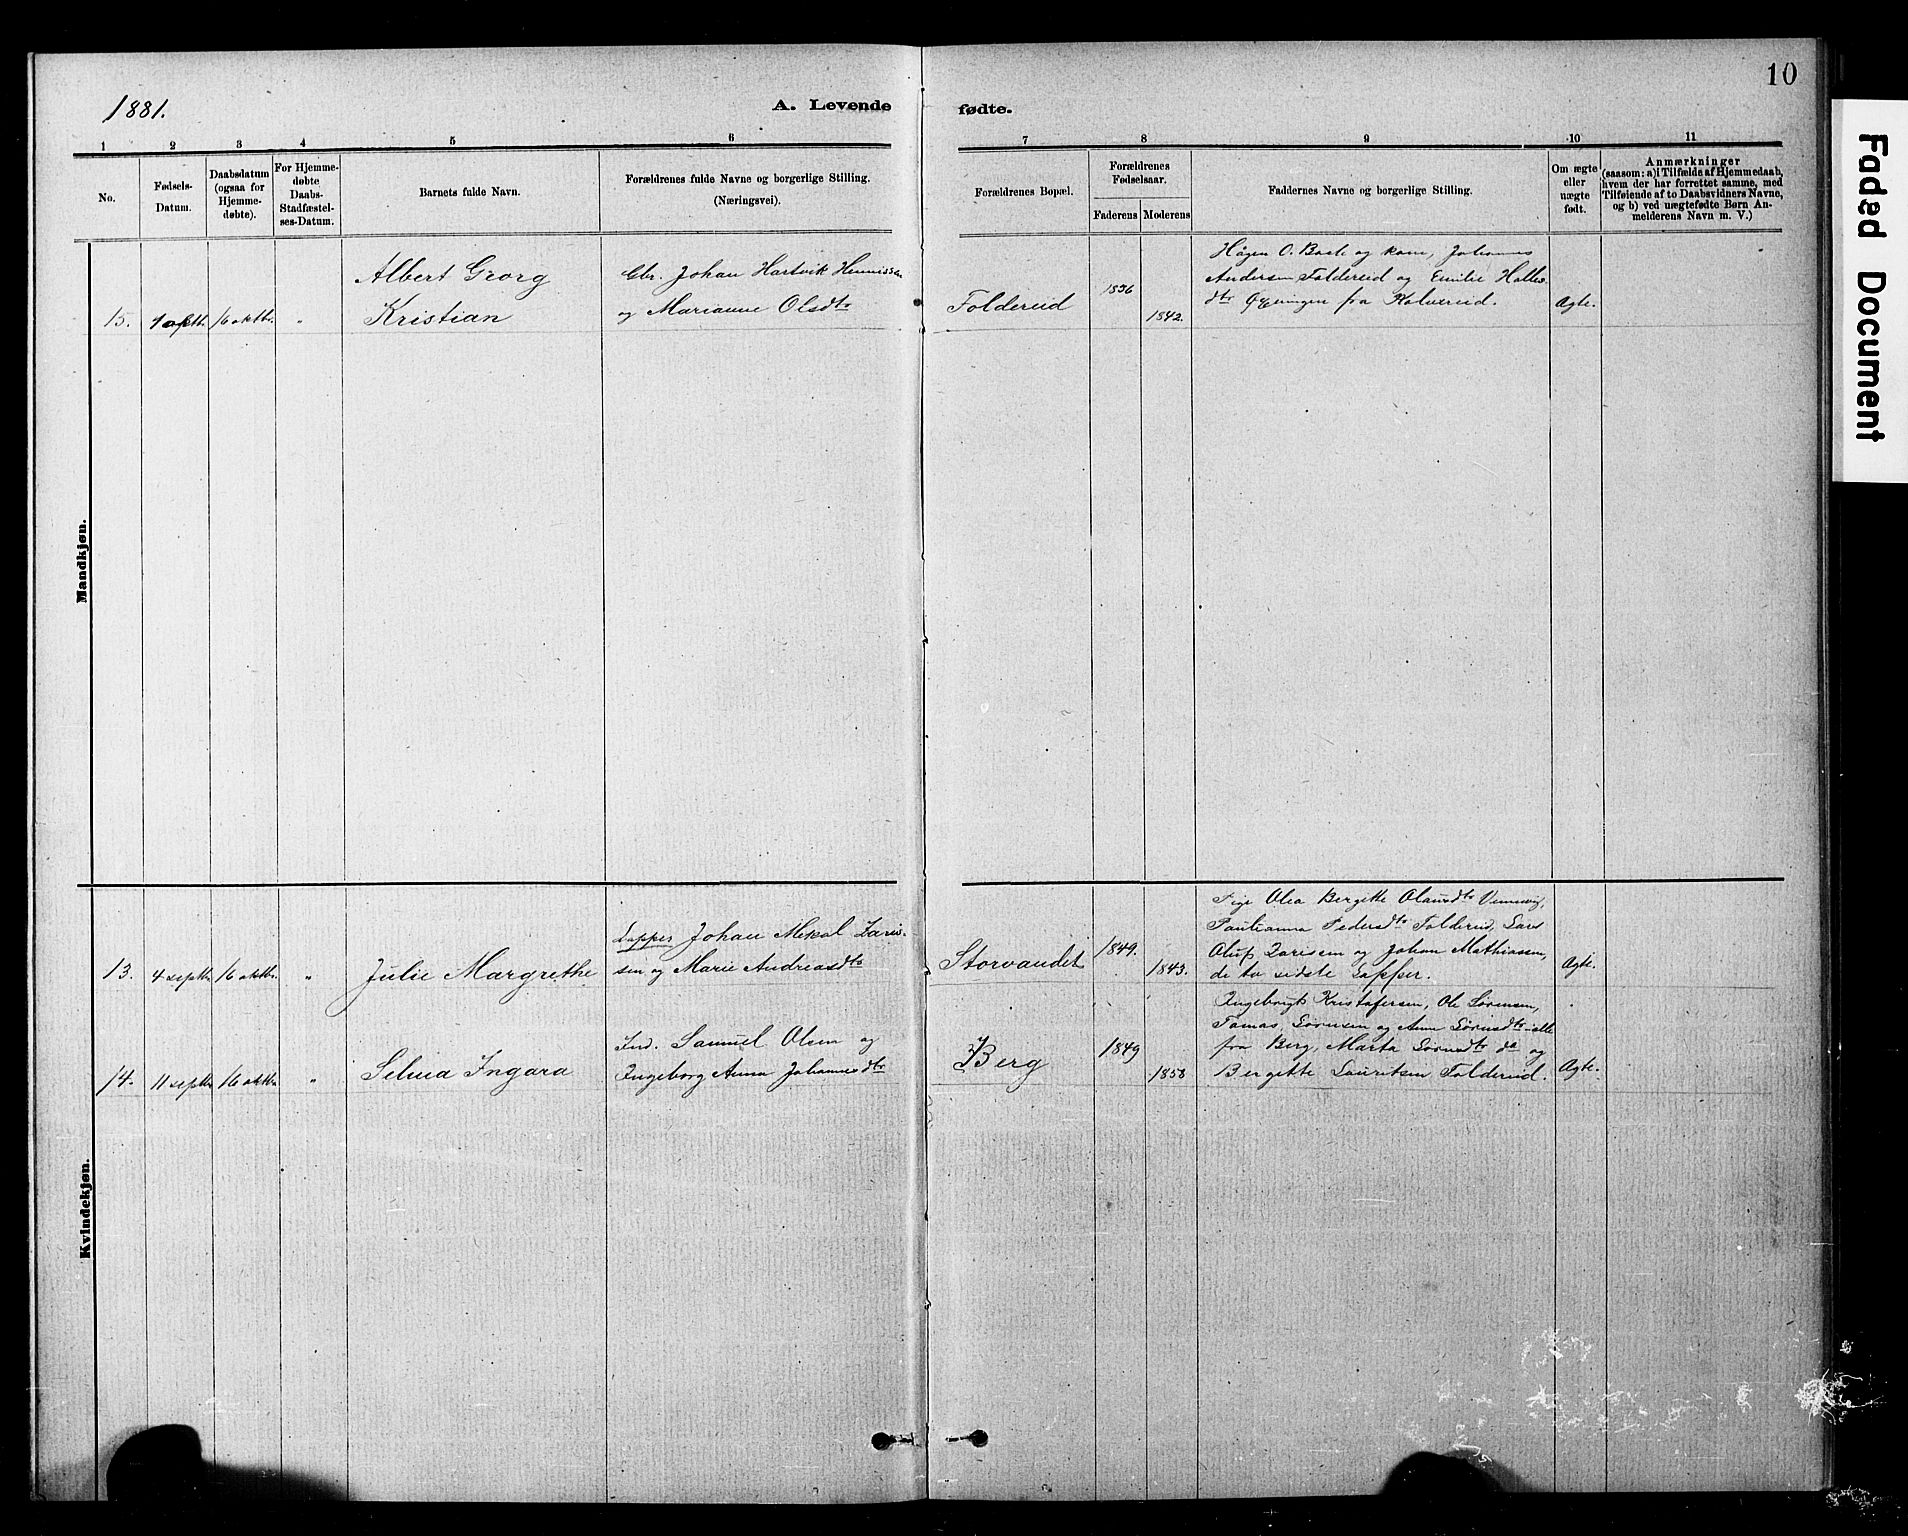 10
1881.
A. Levende fødte.
1 2 3 4 5 6 7 8 9 10 11
No.
Fødsels-
Datum.
Daabsdatum
(ogsaa for
Hjemme-
døbte).
For Hjemme-
døbte
Daabs-
Stadfæstel-
ses-Datum.
Barnets fulde Navn.
Forældrenes fulde Navne og borgerlige Stilling.
(Næringsvei.)
Forældrenes Bopæl.
Forældrenes
Fødselsaar.
Faderens Moderens
Faddernes Navne og borgerlige Stilling.
Om ægte
eller
uægte
født.
Anmærkninger
(saasom: a) i Tilfælde af Hjemmedaab,
hvem der har forrettet samme, med
Tilføiende af to Daabsvidners Navne,
og b) ved uægtefødte Børn An-
melderens Navn m. V.)
Mandkjøn.
15. 16 oktbr. "
Albert Georg
Kristian
Gbr. Johan Hartvik
og Marianne Olsdtr
Foldereid
1836
1842.
Hågen O. og kone, Johannes
Andersen Foldereid og Emilie
dtr fra Kolvereid.
Ægte.
Kvindekjøn.
13. 4 septbr 16 oktbr. "
Julie Margrethe
Lapper Johan Mikal Zaris-
sen og Marie Andreasdtr
Storvandet
1849.
1843.
Pige Olea Bergitte Olausdtr
Paulianna Pedersdtr Foldereid, Lars
Olup Zarisen og Johan Mathiassen,
de to sidste Lapper.
Ægte.
14. 11 septbr 16 oktbr "
Selma Ingara
Ind. Samuel Olsen og
Ingeborg Anna Johannesdtr
Berg
1849
1858
Ingebrigt Kristofersen, Ole Sørensen,
Tomas Sørensen og Anne Sørensdtr alle
fra Berg, Marta Sørensdtr do og
Bergitte Lauritsen Foldereid.
Ægte.
Faded Document